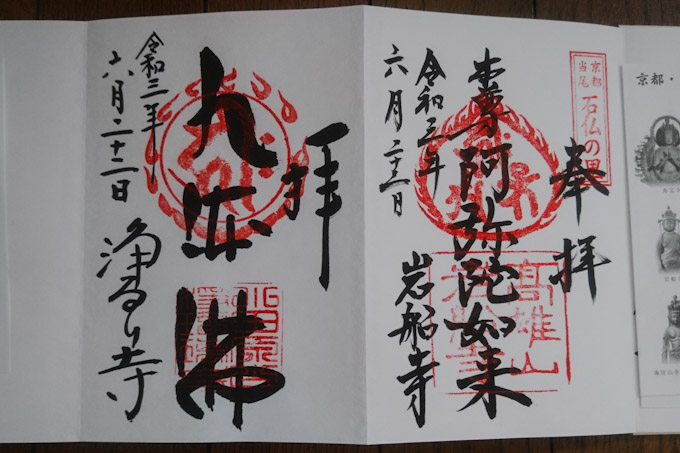 京都・
京都
当尾
石仏の里
奉拝
本尊阿弥陀如来
高雄山
岩船寺
令和三年
六月二十二日
岩船寺
拝
九体佛
令和三年
六月二十二日
浄るり寺